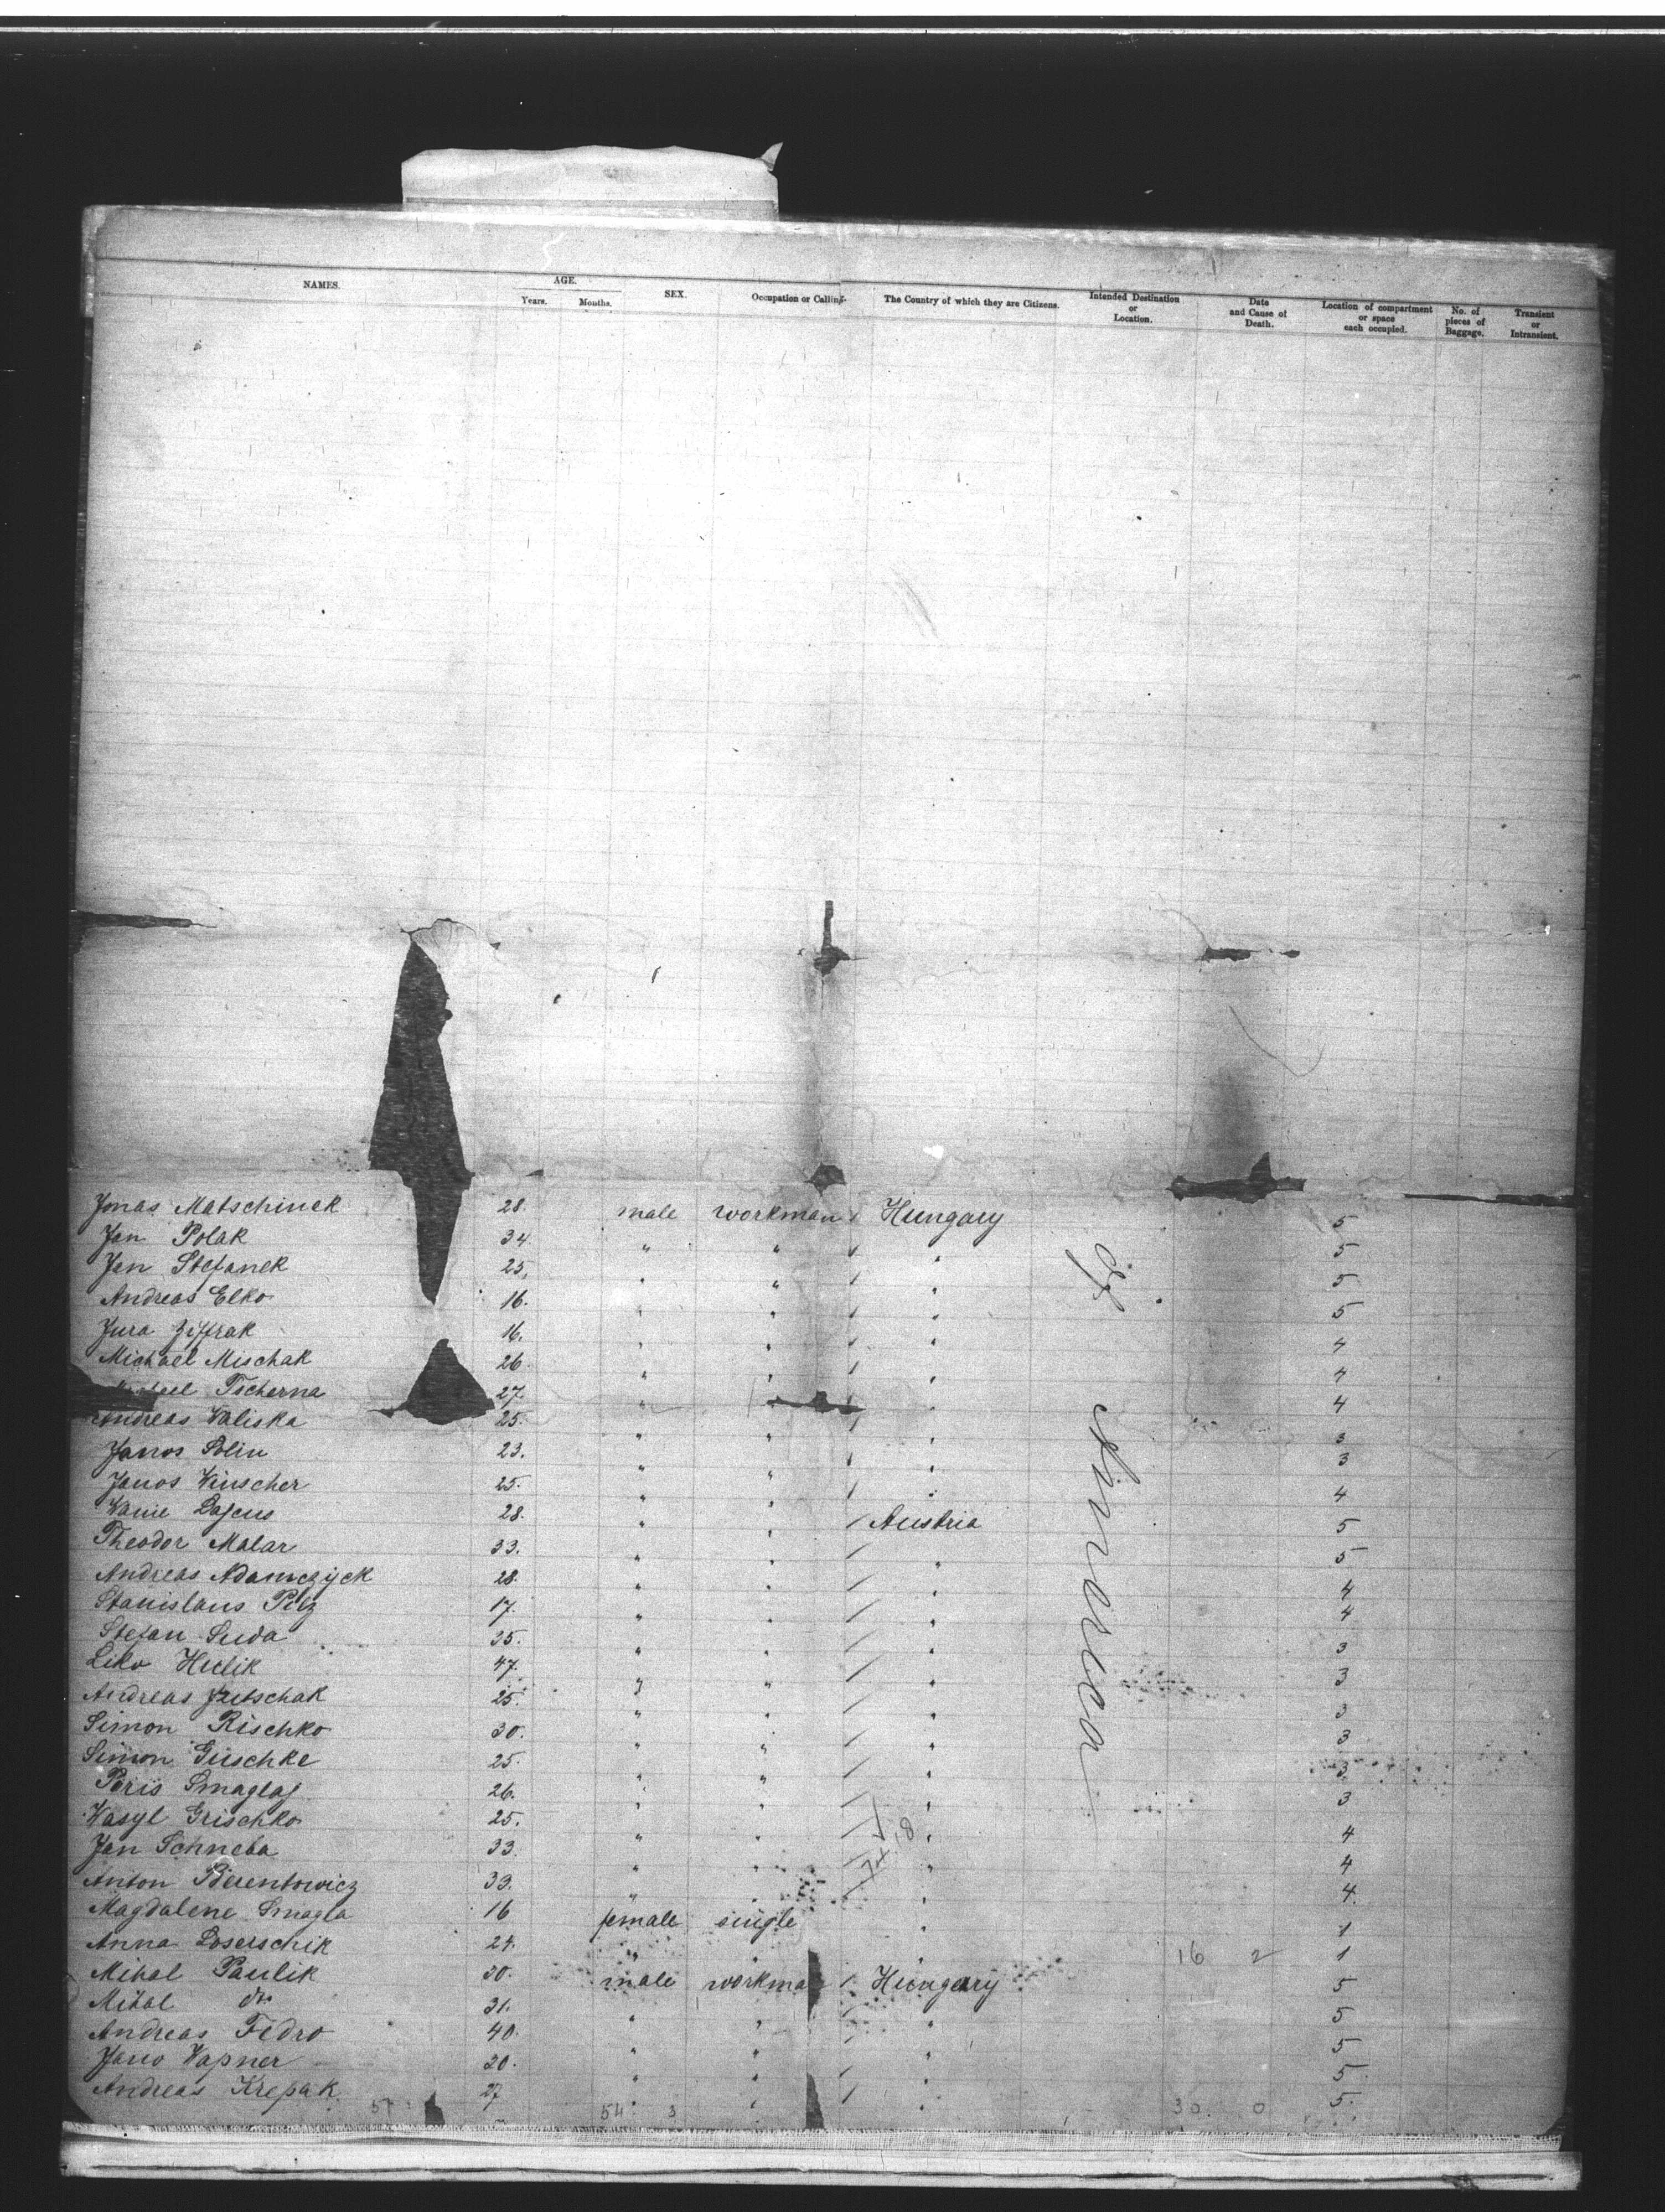 NAMES. AGE. Years. Months. SEX. Occupation or Calling. The Country of which they are Citizens. Intended Destination or Location. Date and Cause of Death. Location of compartment or space each occupied. No. of pieces of Baggage. Transient or Intransient.
Jonas Matschinek 28. male workman / Hungary 5
Jan Polak 34. " " / " 5
Jan Stefanek 25. " " / " 5
Andreas Elko 16. " " / " 5
Jura Ziffrak 16. " " / " 4
Michael Mischak 26. " " / " 4
Tscherna 27. " / " 4
Andreas Waliska 25. " " / " 3
Janos Polin 23. " " / " 3
Janos Winscher 25. " " / " 4
28. " " / Austria 5
Theodor Malar 33. " " / " 5
Andreas Adamczyck 28. " " / " 4
Stanislaus Pilz 17. " " / " 4
Stefan Suda 35. " " / " 3
Liko Hudik 47. " " / " 3
Andreas Jutschak 25. " " / " 3
Simon Rischko 30. " " / " 3
Simon Guschke 25. " " / " 3
Paris Smaglaj 26. " " / " 3
Wasyl Grischko 25. " " / " 4
Jan Schneba 33. " " / " 4
Anton 33. " " / " 4.
Magdalene Smagla 16 female single " 1
Anna Loserschik 24. " " " 16 2 1
Mihal Paulik 30. male workma / Hungary 5
Mihal do 31. " " / " 5
Andreas Fedro 40. " " / " 5
Jano Wapner 20. " " / " 5
Andreas Krepak 27 " " / " 5.
54 3 30. 0
America